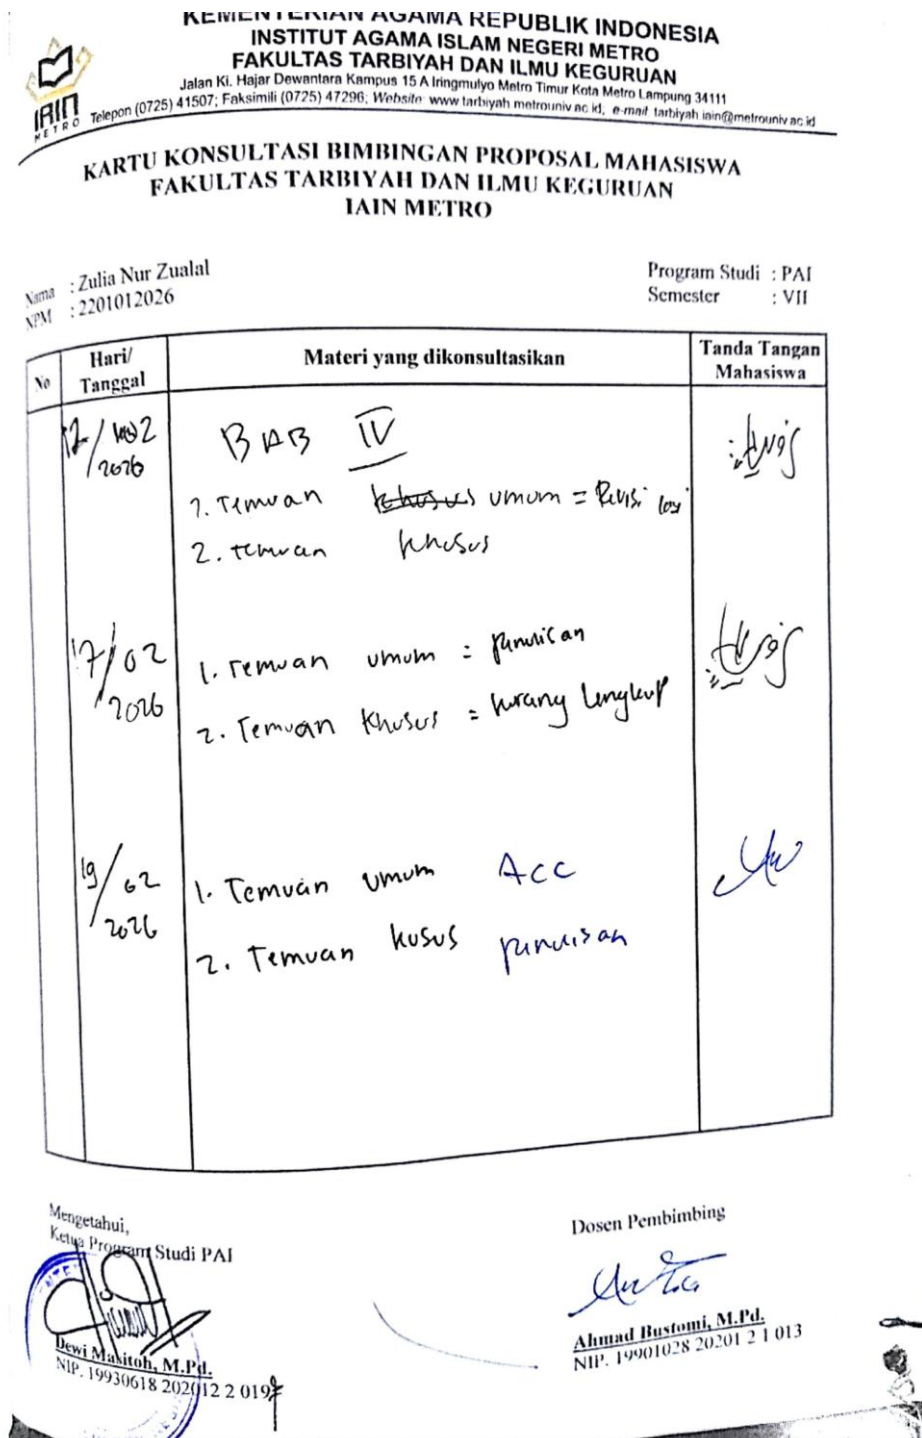 KEMENTERIAN AGAMA REPUBLIK INDONESIA
INSTITUT AGAMA ISLAM NEGERI METRO
FAKULTAS TARBIYAH DAN ILMU KEGURUAN
Jalan Ki. Hajar Dewantara Kampus 15 A Iringmulyo Metro Timur Kota Metro Lampung 34111
Telepon (0725) 41507; Faksimili (0725) 47296; Website: www.tarbiyah.metrouniv.ac.id; e-mail: tarbiyah.iain@metrouniv.ac.id
IAIN
METRO
KARTU KONSULTASI BIMBINGAN PROPOSAL MAHASISWA
FAKULTAS TARBIYAH DAN ILMU KEGURUAN
IAIN METRO
Nama : Zulia Nur Zualal
NPM : 2201012026
Program Studi : PAI
Semester : VII
No
Hari/
Tanggal
Materi yang dikonsultasikan
Tanda Tangan
Mahasiswa
12/02
2026
BAB IV
1. Temuan khusus umum = Revisi
2. temuan khusus
17/02
2026
1. Temuan umum = penulisan
2. Temuan Khusus = kurang lengkap
19/02
2026
1. Temuan umum Acc
2. Temuan kusus penulisan
Mengetahui,
Ketua Program Studi PAI
Dewi Masitoh, M.Pd.
NIP. 19930618 202012 2 019
Dosen Pembimbing
Ahmad Bustomi, M.Pd.
NIP. 19901028 20201 2 1 013